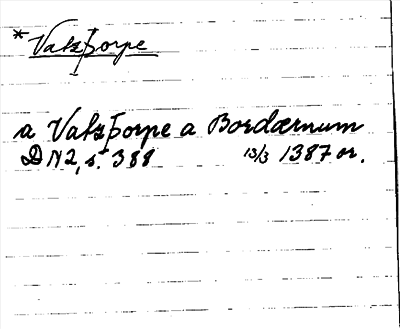 *Vatzþorpe
a Vatzþorpe a Bordærnum
DN2, s. 388 13/3 1387 or.